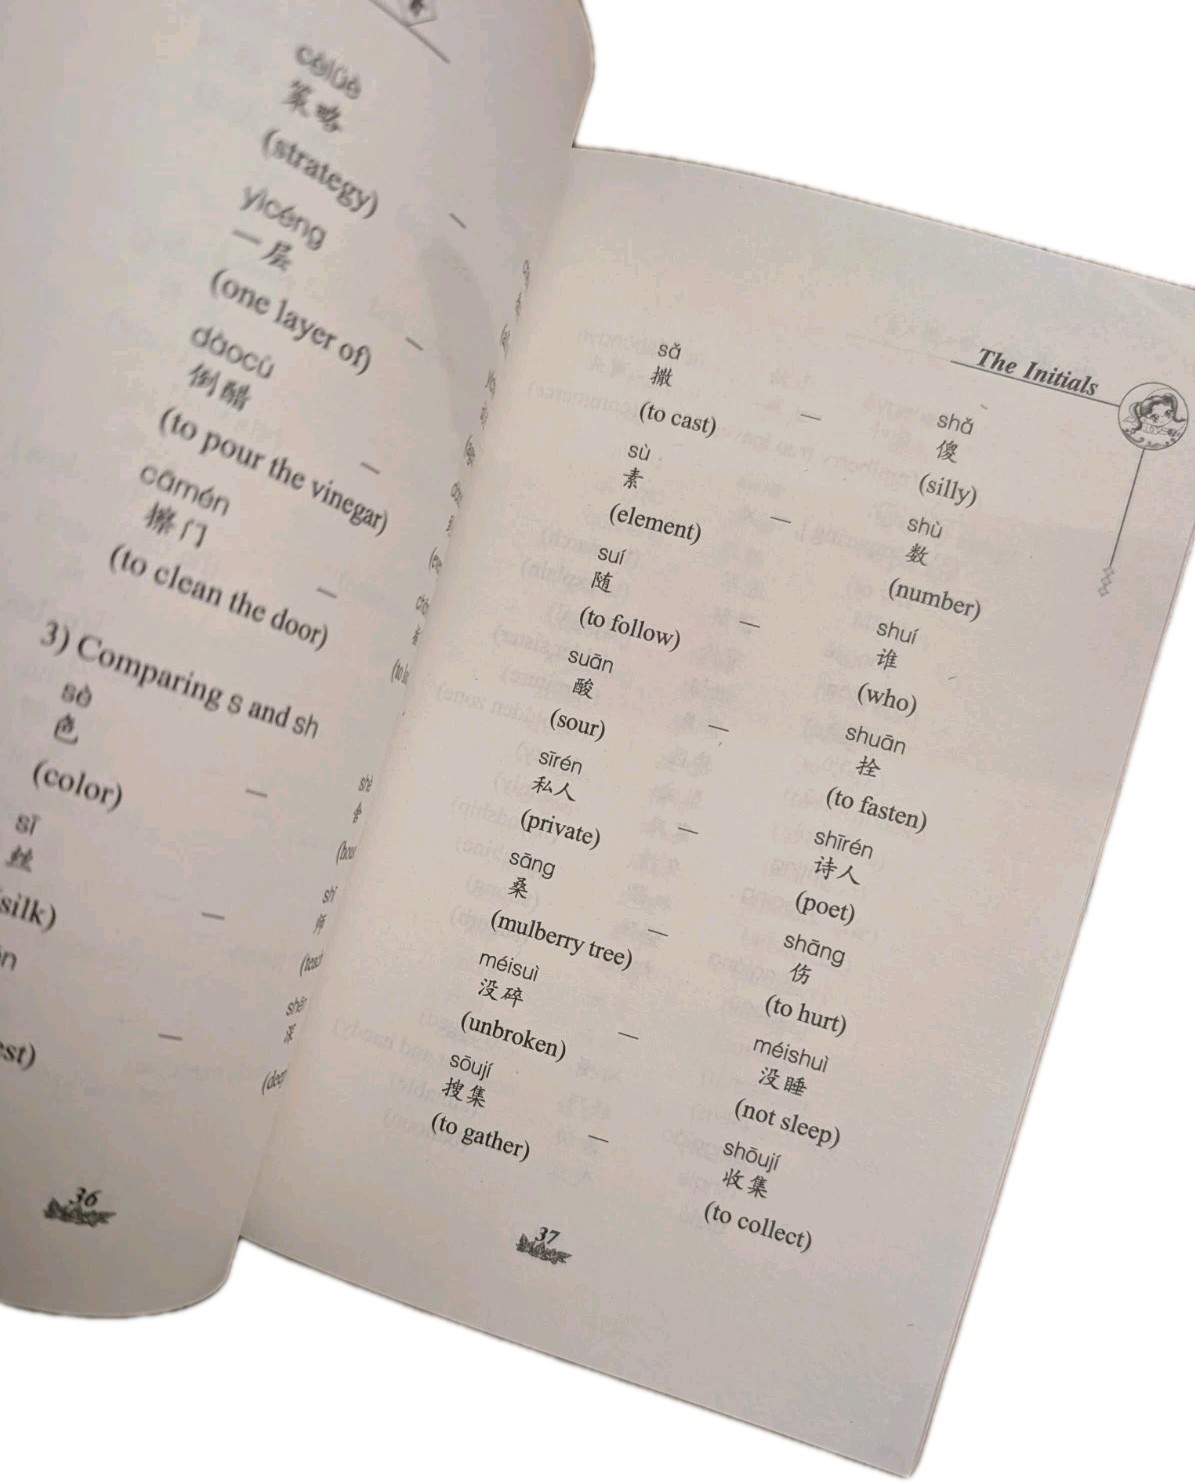 cèlüè
策略
(strategy)
—
yìcéng
一层
(one layer of)
—
dàocù
倒醋
(to pour the vinegar)
—
cāmén
擦门
(to clean the door)
—
3) Comparing s and sh
sè
色
(color)
—
sī
丝
silk)
—
—
36
The Initials
sǎ
撒
(to cast)
—
shǎ
傻
(silly)
sù
素
(element)
—
shù
数
(number)
suí
随
(to follow)
—
shuí
谁
(who)
suān
酸
(sour)
—
shuān
拴
(to fasten)
sīrén
私人
(private)
—
shīrén
诗人
(poet)
sāng
桑
(mulberry tree)
—
shāng
伤
(to hurt)
méisuì
没碎
(unbroken)
—
méishuì
没睡
(not sleep)
sōují
搜集
(to gather)
—
shōují
收集
(to collect)
37